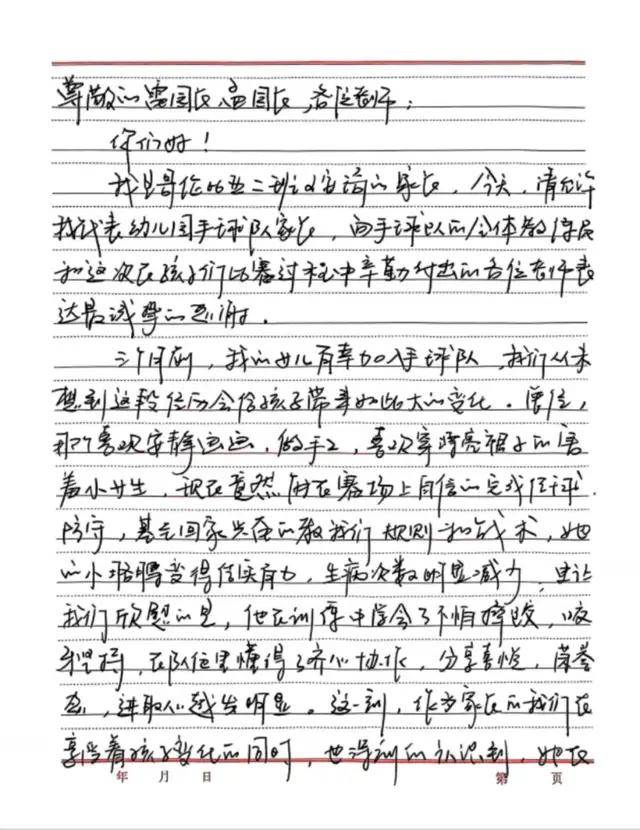 尊敬的园长、孟园长、各位老师：
你们好！
我是哥伦比亚二班的家长，今天，请允许
我代表幼儿园手球队家长，向手球队的全体教练员
和这次在孩子们比赛过程中辛勤付出的各位老师表
达最诚挚的感谢。
三个月前，我的女儿有幸加入手球队，我们从未
想到这段经历会给孩子带来如此大的变化。曾经，
那个喜欢安静画画，做手工，喜欢穿漂亮裙子的害
羞小女生，现在竟然能在赛场上自信的完成传球、
防守，甚至回家兴奋的教我们规则和战术，她
的小胳膊变得结实有力，生病次数明显减少，更让
我们欣慰的是，他在训练中学会了不怕摔跤，咬
牙坚持，在队伍里懂得了齐心协作，分享喜悦，荣誉
感，进取心越发明显。这一刻，作为家长的我们在
享受着孩子变化的同时，也深刻的认识到，她在
年 月 日
第 页